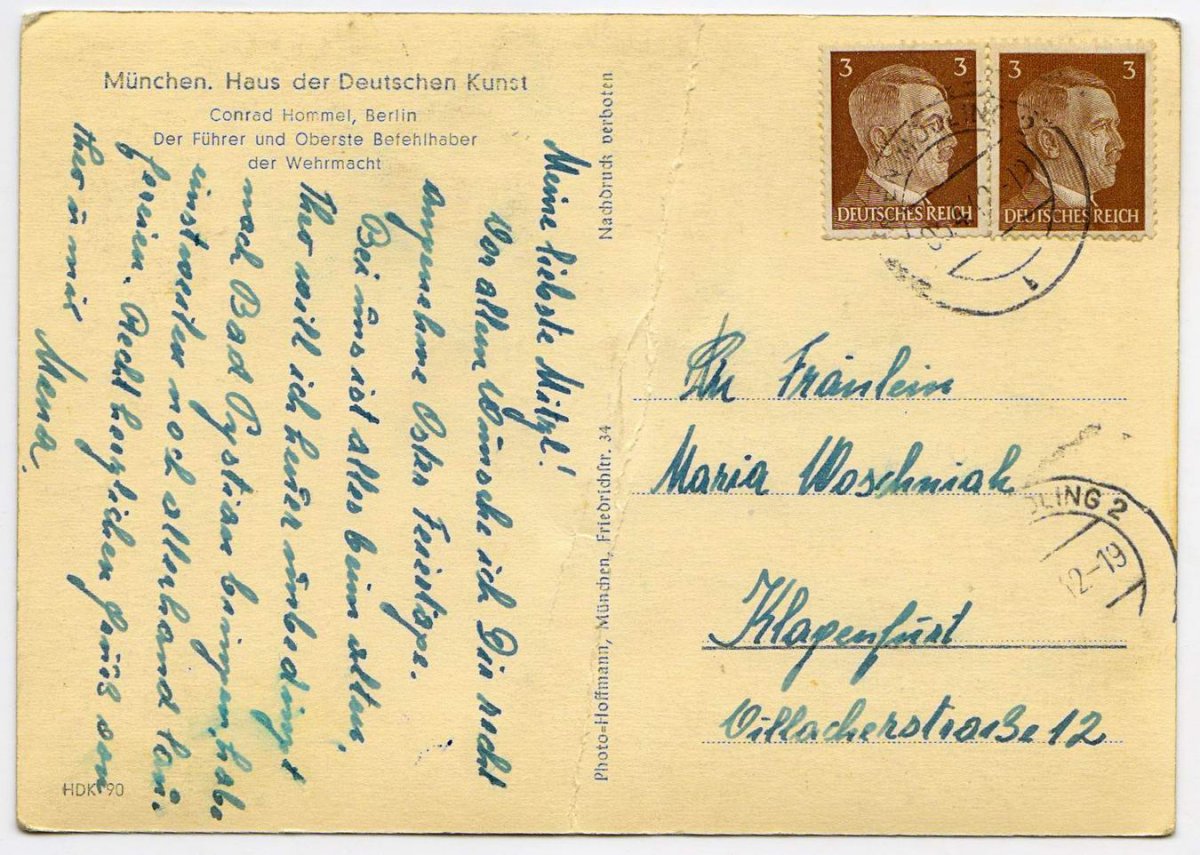 München. Haus der Deutschen Kunst
Conrad Hommel, Berlin
Der Führer und Oberste Befehlhaber
der Wehrmacht
Meine liebste Mitzl!
Vor allem wünsche ich Dir recht
angenehme Oster Feiertage.
Bei uns ist alles beim alten,
Theo will ich heuer unbedingt
nach Bad Pystian bringen, habe
einstweilen noch allerhand
Recht herzlichen Gruß von
Theo u mir
HDK 90
Nachdruck verboten
Photo=Hoffmann, München, Friedrichstr. 34
3 3
DEUTSCHES REICH
3 3
DEUTSCHES REICH
1
An Fräulein
Maria Woschniak
DLING 2
42-19
Klagenfurt
Villacherstraße 12